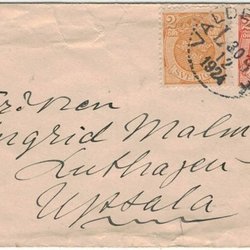 VALDE
30
12
1924
2
Fröken
Ingrid Malm
Luthagen
Upsala